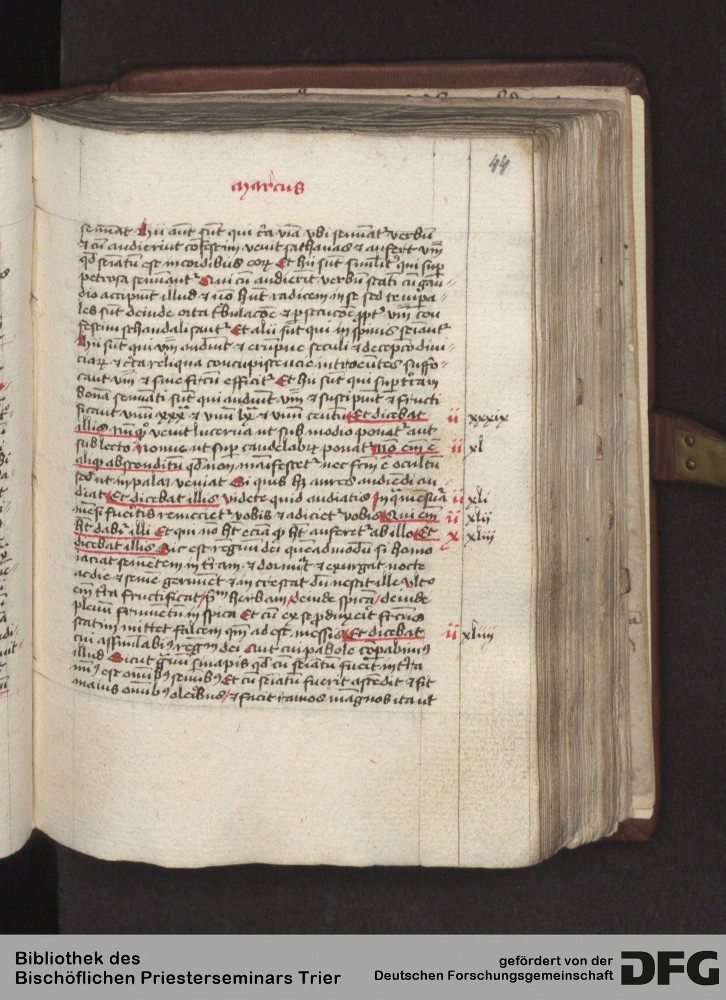 44
marcus
seminat hii aut sut qui circa via ubi seminat verbu
et cu audierint confestim venit sathanas et aufert
qd seiatu est in cordibus eorum Et hii sut similiter qui sup
petrosa seminant Qui cu audierit verbu statim cu gau
dio accipiut illud et no hnt radicem in se sed tempora
les sut deinde orta tribulacoe et persecucoe ppt
festim schandalisant Et alii sut qui in spinis seiantur
hii sut qui audiut et erupne seculi et decepco divi
ciarum et circa reliqua concupiscencie introeuntes suffo
cant et sine fructu efficit Et hii sut qui sup terram
bonam seminati sut qui audiut et suscipiut et fructi
ficant unum xxx et unum lx et unum centu Et dicebat ii xxxix
illis venit lucerna ut sub modio ponatur aut
sub lecto nonne ut sup candelabrum ponatur no em e ii xl
aliquid absconditu qd non manifestetur nec fcm e occultu
sed ut in palam veniat Si quis hz aures audiedi au
diat Et dicebat illis videte quid audiatis In qua mesura ii xli
mesi fueritis remecietur vobis et adicietur vobis Qui em ii xlii
ht dabitur illi Et qui no ht ecia qd ht auferetur ab illo Et x xliii
dicebat illis Sic est regnum dei quemadmodu si homo
iaciat sementem in terram et dormiat et exurgat nocte
ac die et semen germinet et increscat du nescit ille Ulto
em terra fructificat pm herbam deinde spicam deinde
plenu frumentum in spica Et cu ex se pduxerit fructus
statim mittet falcem qm adest messis Et dicebat ii xliiii
cui assimilabimus regnum dei Aut cui pabole coparabimus
illud Sicut granum sinapis qd cu seiatu fuerit in terra
minus est omnibus seminibus Et cu seiatum fuerit ascedit et fit
maius omnibus oleribus et facit ramos magnos ita ut
Bibliothek des
Bischöflichen Priesterseminars Trier
gefördert von der
Deutschen Forschungsgemeinschaft
DFG